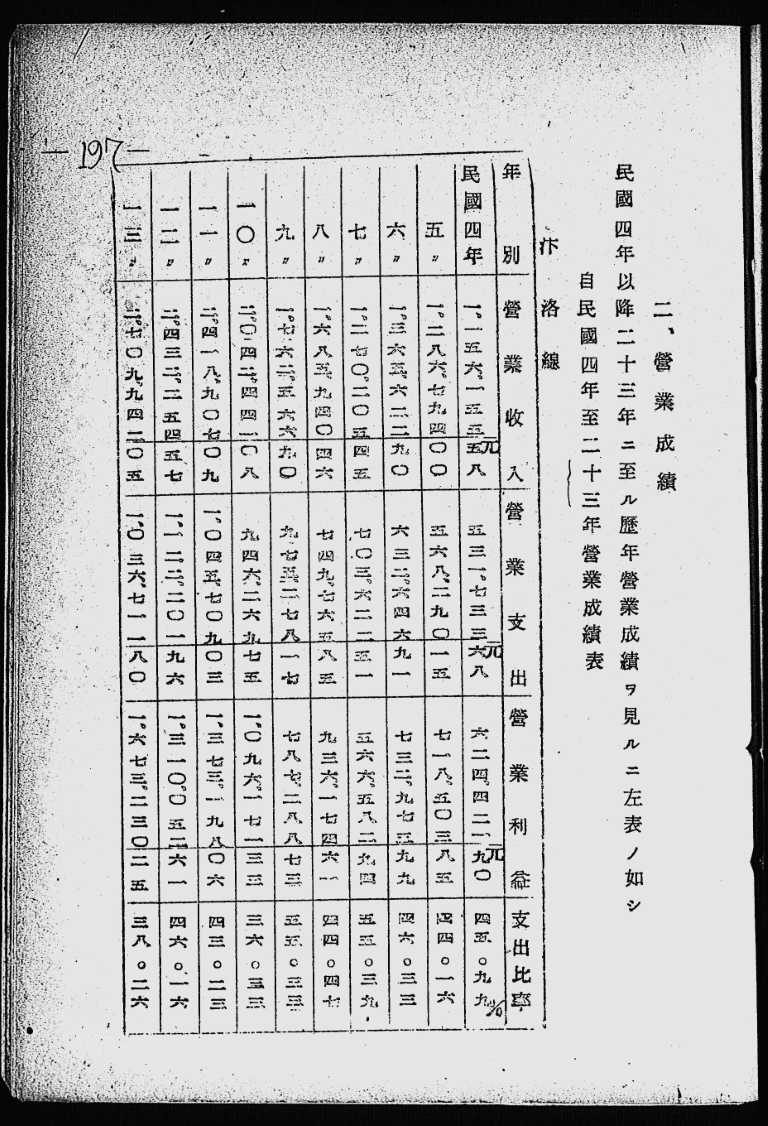 二、營業成績
民國四年以降二十三年ニ至ル歷年營業成績ヲ見ルニ左表ノ如シ
自民國四年至二十三年營業成績表
汴洛線
年別 營業收入 營業支出 營業利益 支出比率
民國四年 一。一五六。一五五元五八 五三一。七三三元六八 六二四。四二一元九〇 四五。九九%
五〃 一。二八六。七九四〇〇 五六八。二九〇一五 七一八。五〇三八五 四四。一六
六〃 一。三六五。六二二九〇 六三二。六四六九一 七三二。九七五九九 四六。三三
七〃 一。二七〇。二〇五四五 七〇三。六二二五一 五六六。五八二九四 五五。三九
八〃 一。六八五。九四〇四六 七四九。七六五八五 九三六。一七四六一 四四。四七
九〃 一。七六二。五六六九〇 九七五。二七八一七 七八七。二八八七三 五五。三三
一〇〃 二。〇四二。四四一〇八 九四六。二六九七五 一。〇九六。一七一三三 三六。三三
一一〃 二。四一八。九〇七〇九 一。〇四五。七〇九〇三 一。三七三。一九八〇六 四三。二三
一二〃 二。四三二。二五四五七 一。一二二。二〇一九六 一。三一〇。〇五二六一 四六。一六
一三〃 二。七〇九。九四二〇五 一。〇三六。七一一八〇 一。六七三。二三〇二五 三八。二六
—197—